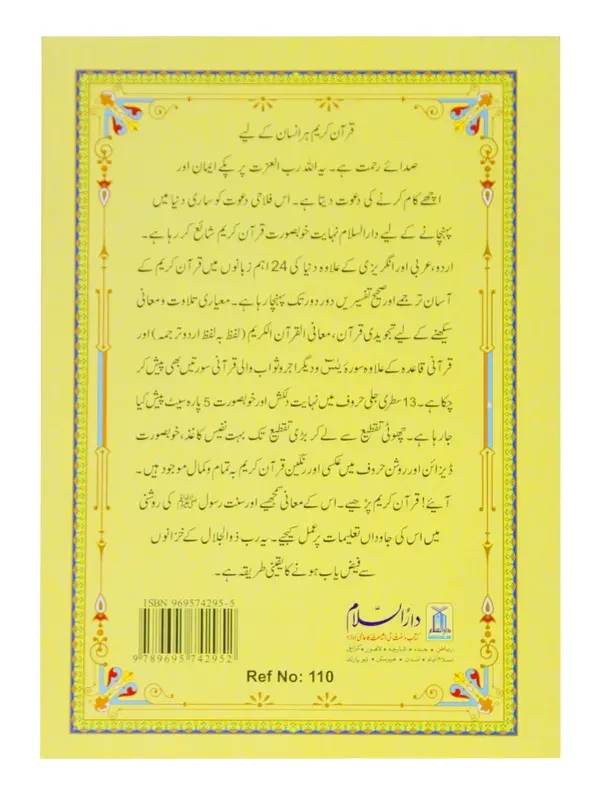 قرآن کریم ہر انسان کے لیے
صدائے رحمت ہے۔ یہ اللہ رب العزت پر پکے ایمان اور
اچھے کام کرنے کی دعوت دیتا ہے۔ اس فلاحی دعوت کو ساری دنیا میں
پہنچانے کے لیے دارالسلام نہایت خوبصورت قرآن کریم شائع کر رہا ہے۔
اردو، عربی اور انگریزی کے علاوہ دنیا کی 24 اہم زبانوں میں قرآن کریم کے
آسان ترجمے اور صحیح تفسیریں دور دور تک پہنچا رہا ہے۔ معیاری تلاوت و معانی
سیکھنے کے لیے تجویدی قرآن، معانی القرآن الکریم (لفظ بہ لفظ اردو ترجمہ) اور
قرآنی قاعدہ کے علاوہ سورۂ یٰسٓ و دیگر اجر و ثواب والی قرآنی سورتیں بھی پیش کر
چکا ہے۔ 13 سطری جلی حروف میں نہایت دلکش اور خوبصورت 5 پارہ سیٹ پیش کیا
جا رہا ہے۔ چھوٹی تقطیع سے لے کر بڑی تقطیع تک بہت نفیس کاغذ، خوبصورت
ڈیزائن اور روشن حروف میں عکسی اور رنگین قرآن کریم بہ تمام و کمال موجود ہیں۔
آئیے! قرآن کریم پڑھیے۔ اس کے معانی سمجھیے اور سنت رسول ﷺ کی روشنی
میں اس کی جاوداں تعلیمات پر عمل کیجیے۔ یہ رب ذوالجلال کے خزانوں
سے فیض یاب ہونے کا یقینی طریقہ ہے۔
ISBN 969574295-5
9 789695 742952
دارُالسّلام
کتاب و سنت کی اشاعت کا عالمی ادارہ
ریاض ٭ جدہ ٭ شارجہ ٭ لاہور ٭ کراچی
اسلام آباد ٭ لندن ٭ ہیوسٹن ٭ نیویارک
Ref No: 110